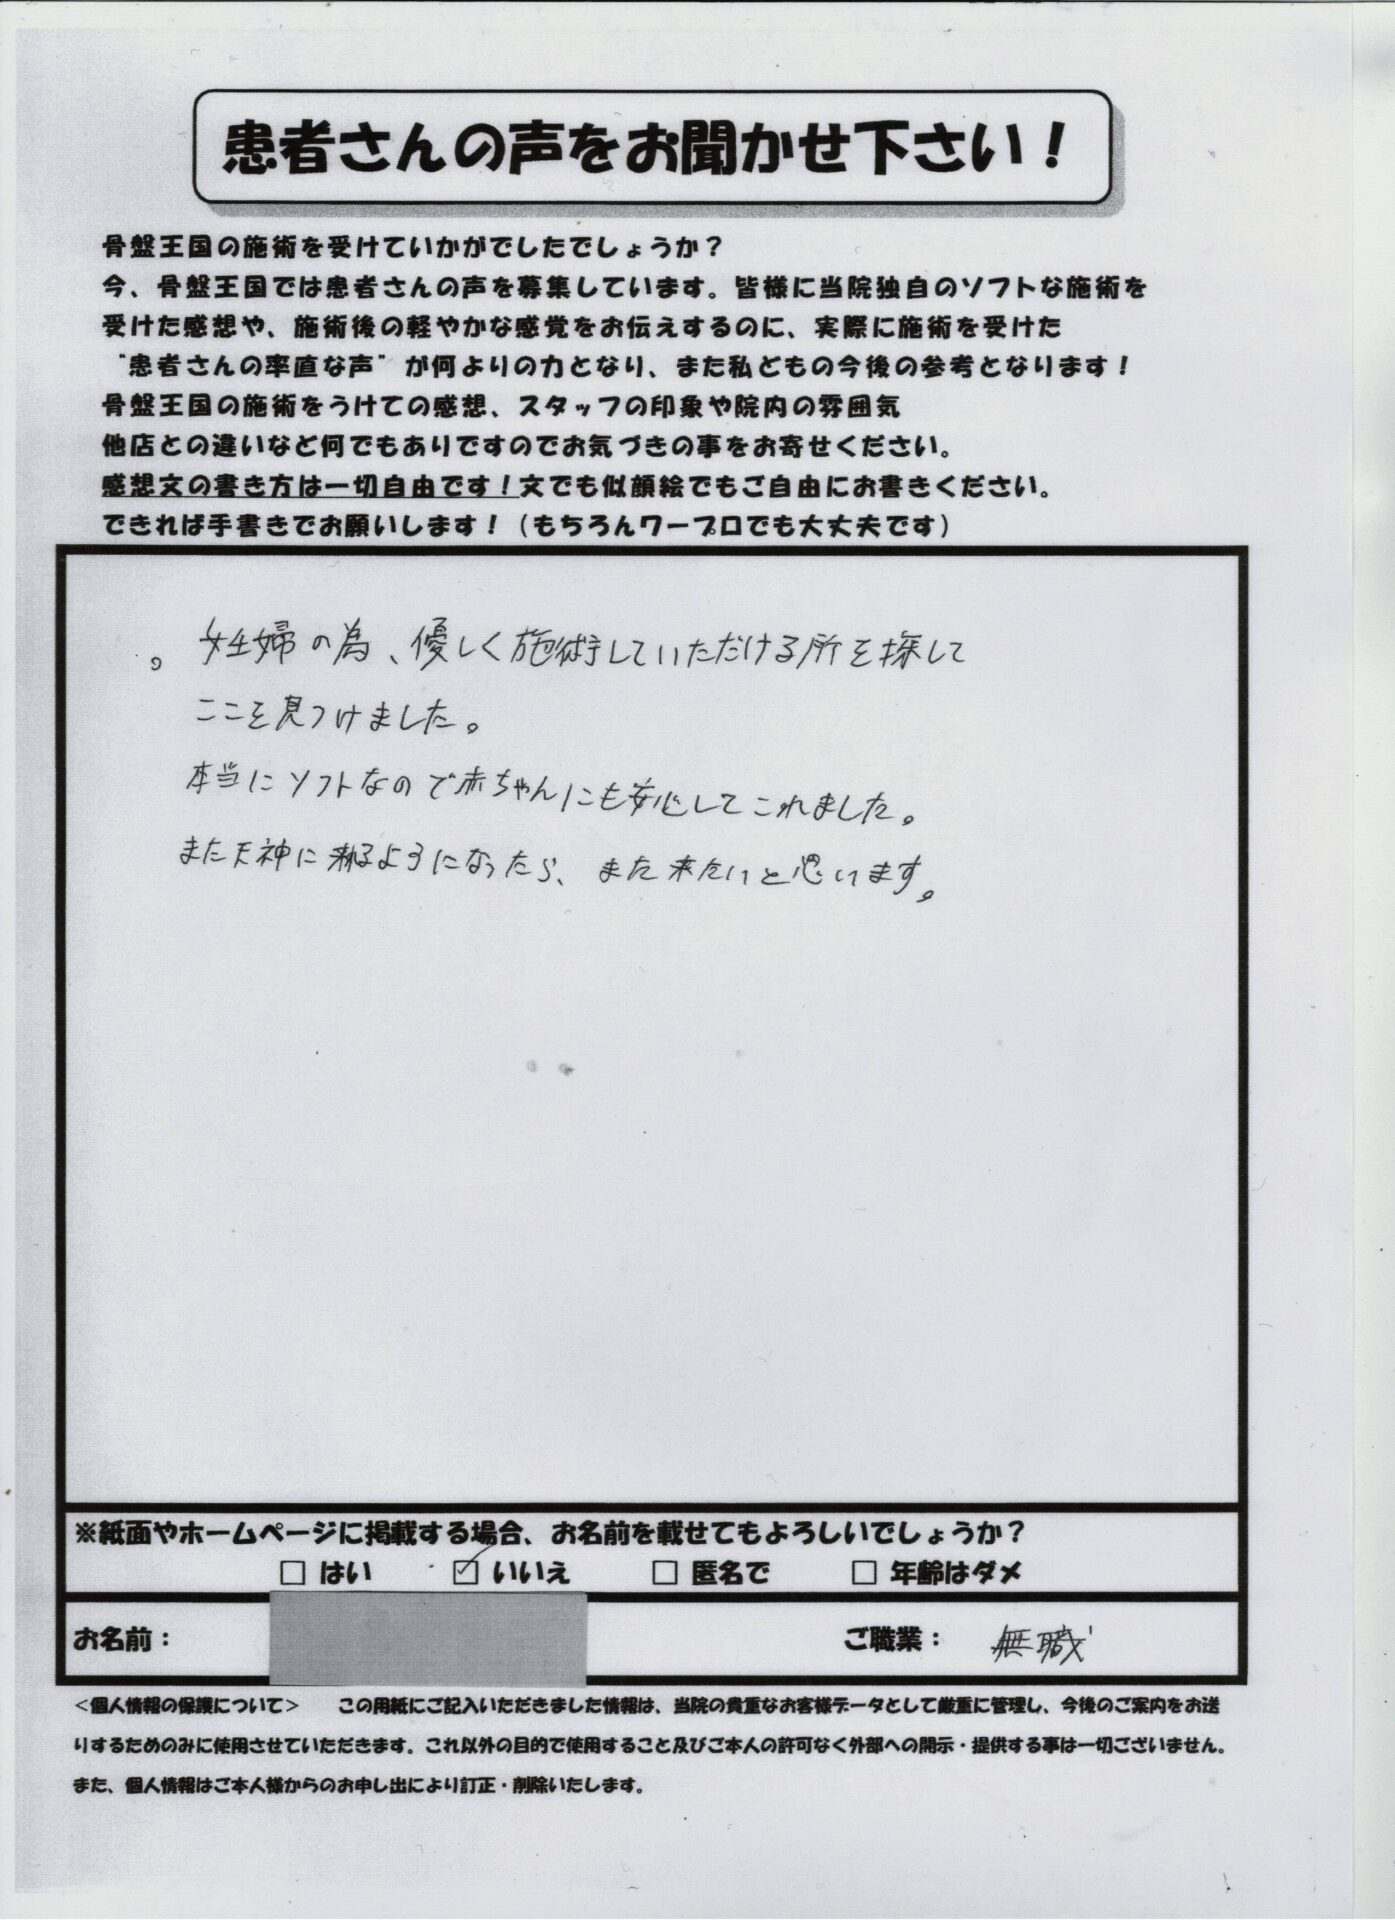 患者さんの声をお聞かせ下さい！
骨盤王国の施術を受けていかがでしたでしょうか？
今、骨盤王国では患者さんの声を募集しています。皆様に当院独自のソフトな施術を
受けた感想や、施術後の軽やかな感覚をお伝えするのに、実際に施術を受けた
“患者さんの率直な声”が何よりの力となり、また私どもの今後の参考となります！
骨盤王国の施術をうけての感想、スタッフの印象や院内の雰囲気
他店との違いなど何でもありですのでお気づきの事をお寄せください。
感想文の書き方は一切自由です！文でも似顔絵でもご自由にお書きください。
できれば手書きでお願いします！（もちろんワープロでも大丈夫です）
。妊婦の為、優しく施術していただける所を探して
ここを見つけました。
本当にソフトなので赤ちゃんにも安心してこれました。
また天神に来れるようになったら、また来たいと思います。
※紙面やホームページに掲載する場合、お名前を載せてもよろしいでしょうか？
□ はい ☑ いいえ □ 匿名で □ 年齢はダメ
お名前： ご職業： 無職
＜個人情報の保護について＞ この用紙にご記入いただきました情報は、当院の貴重なお客様データとして厳重に管理し、今後のご案内をお送
りするためのみに使用させていただきます。これ以外の目的で使用すること及びご本人の許可なく外部への開示・提供する事は一切ございません。
また、個人情報はご本人様からのお申し出により訂正・削除いたします。